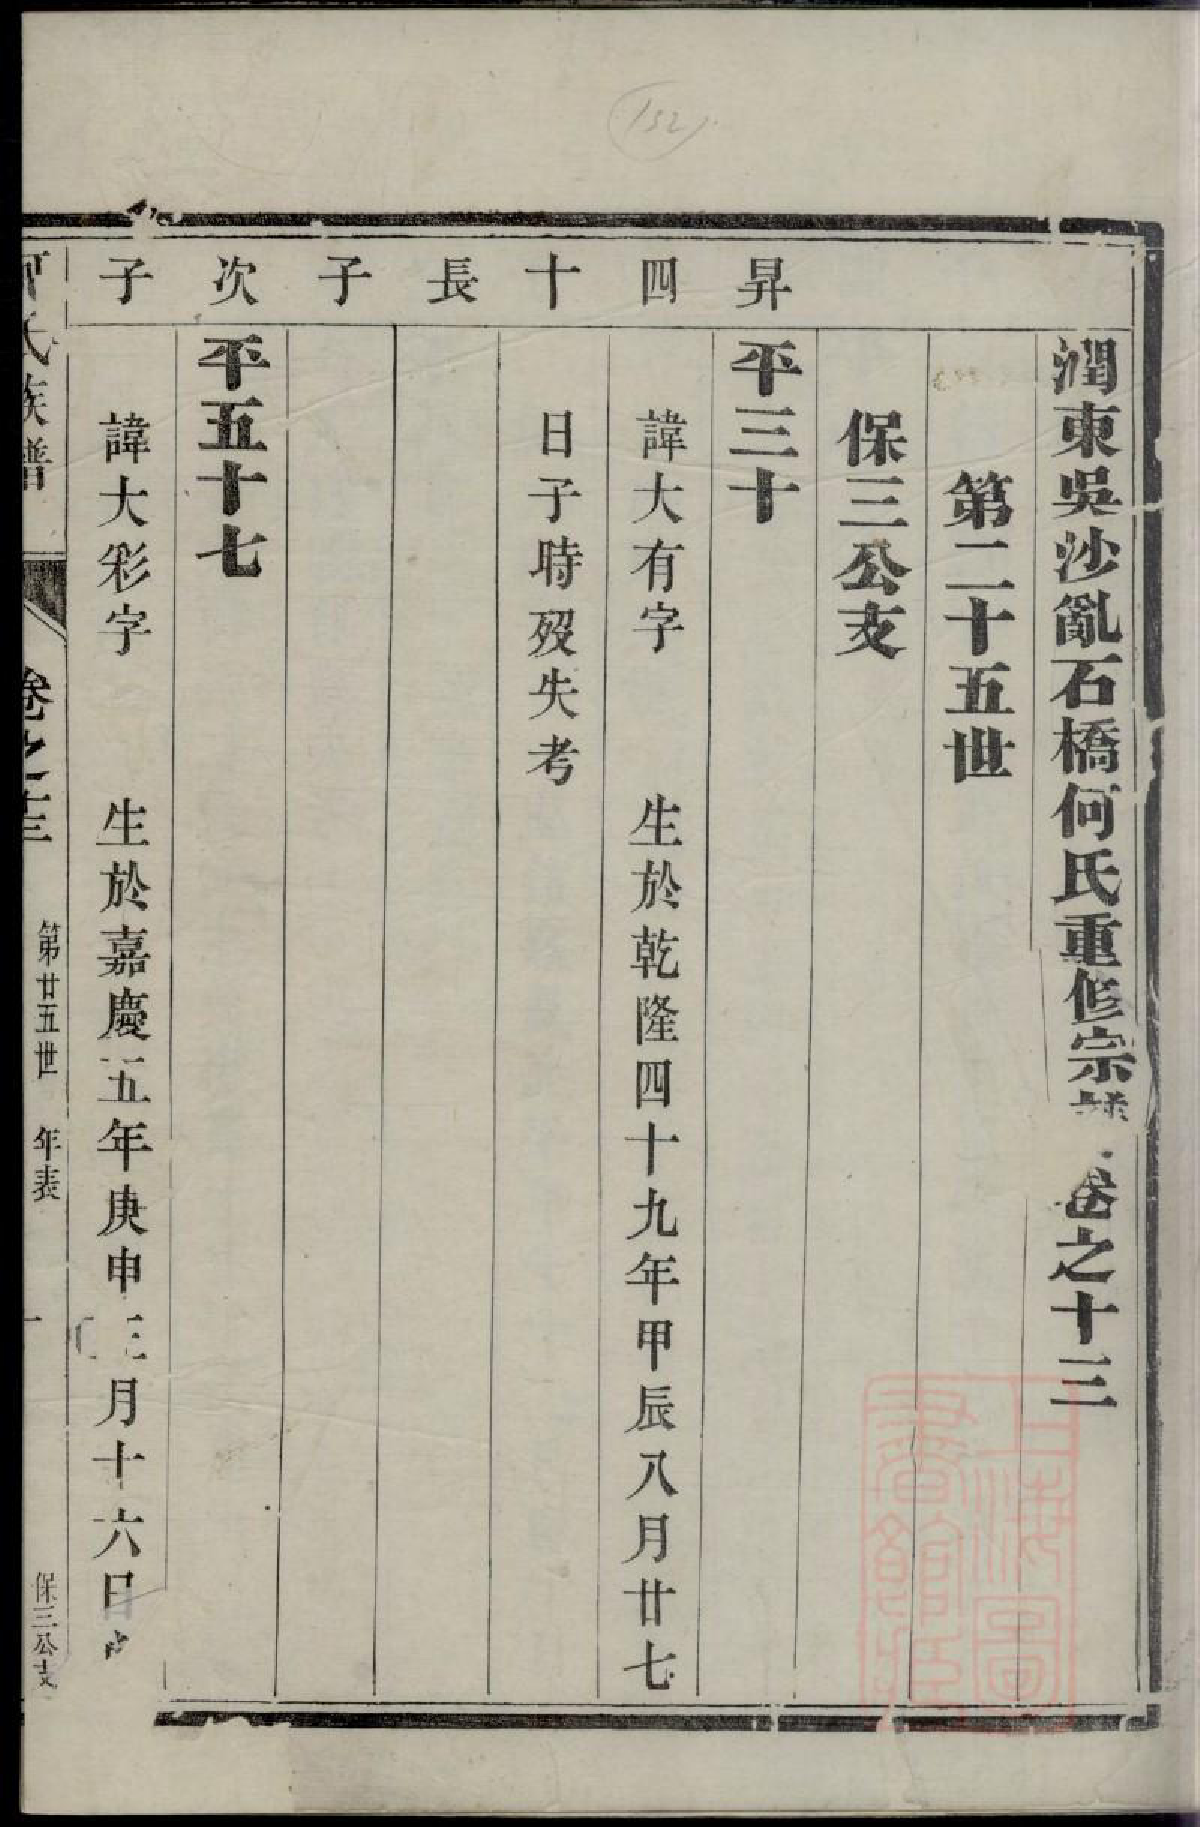 152
潤東吳沙亂石橋何氏重修宗譜卷之十三
第二十五世
保三公支
昇四十長子次子
平三十
諱大有字 生於乾隆四十九年甲辰八月廿七
日子時歿失考
平五十七
諱大彩字 生於嘉慶五年庚申三月十六日
何氏族譜 卷之十三 第廿五世 年表 一 保三公支
上海圖書館藏